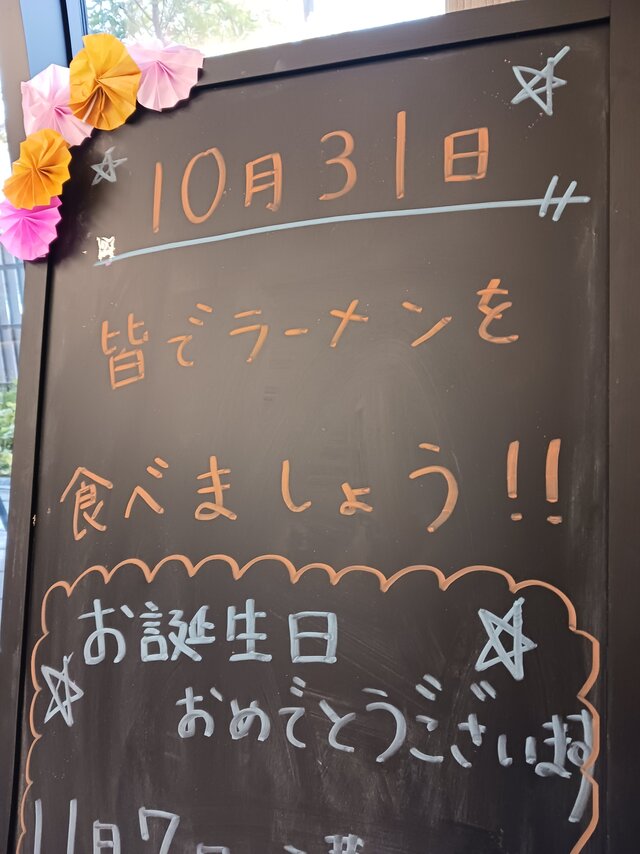 10月31日
皆でラーメンを
食べましょう!!
お誕生日
おめでとうございます
11月7日